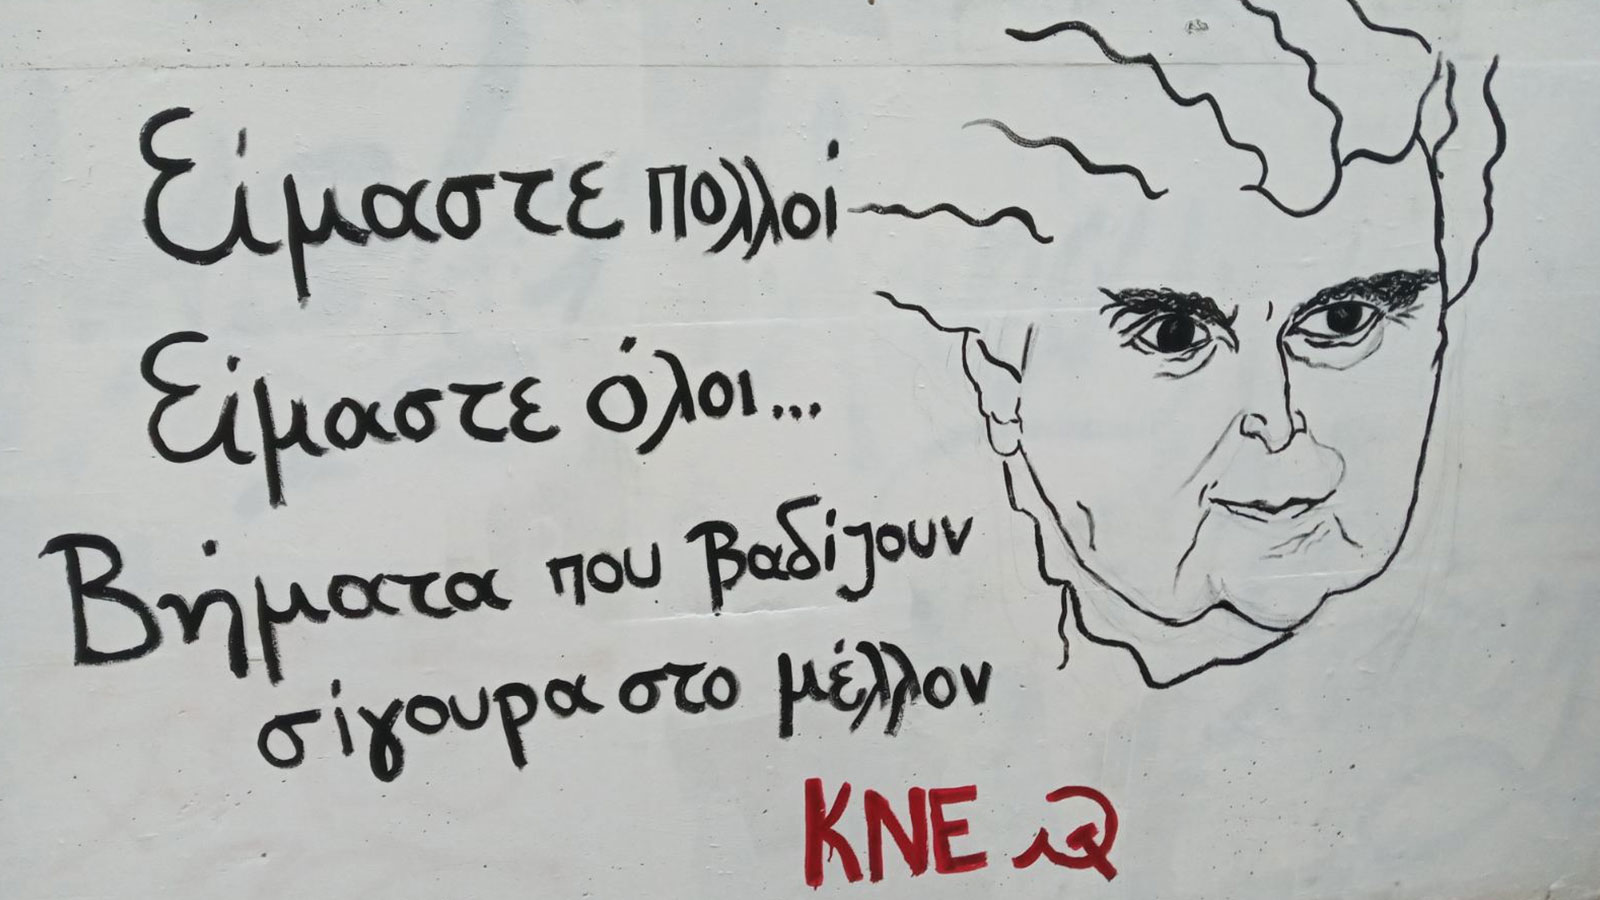 Είμαστε πολλοί
Είμαστε όλοι...
Βήματα που βαδίζουν
σίγουρα στο μέλλον
ΚΝΕ